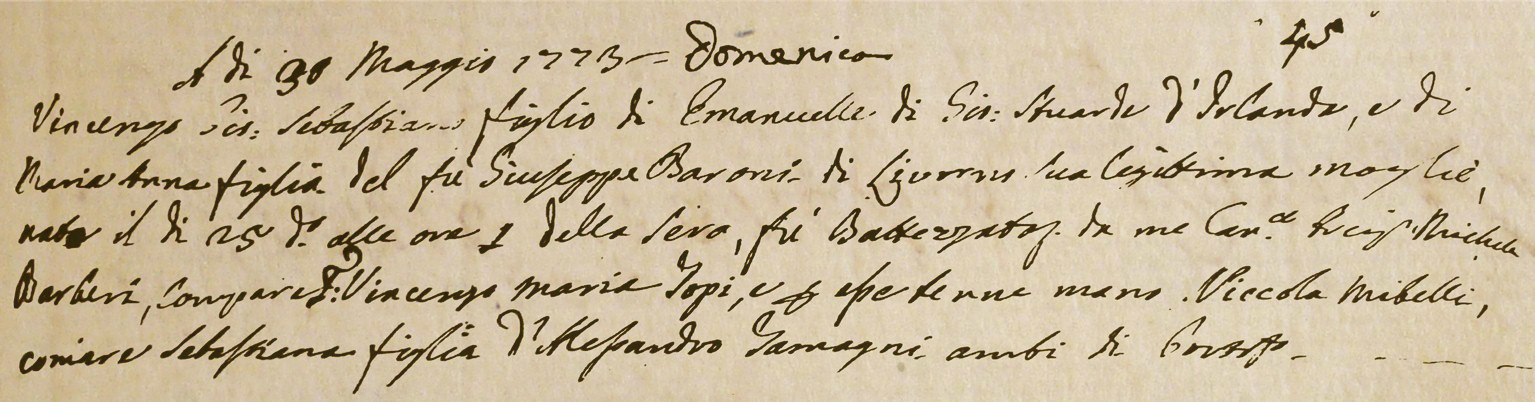 45
A di 30 Maggio 1773 = Domenico
Vincenzo Gio: Sebastiano figlio di Emanuelle di Gio: Stuarde d'Irlanda, e di
Maria Anna figlia del fù Giuseppe Baroni di Livorno sua legittima moglie,
nato il di 25 do. alle ore 1 della sera, fù Battezzato da me Can.co Michele
Barberi, compare Vincenzo Maria Topi, e p esso tenne mano Niccola Mibelli,
comare Sebastiana figlia d'Alessandro Gamagni ambi di